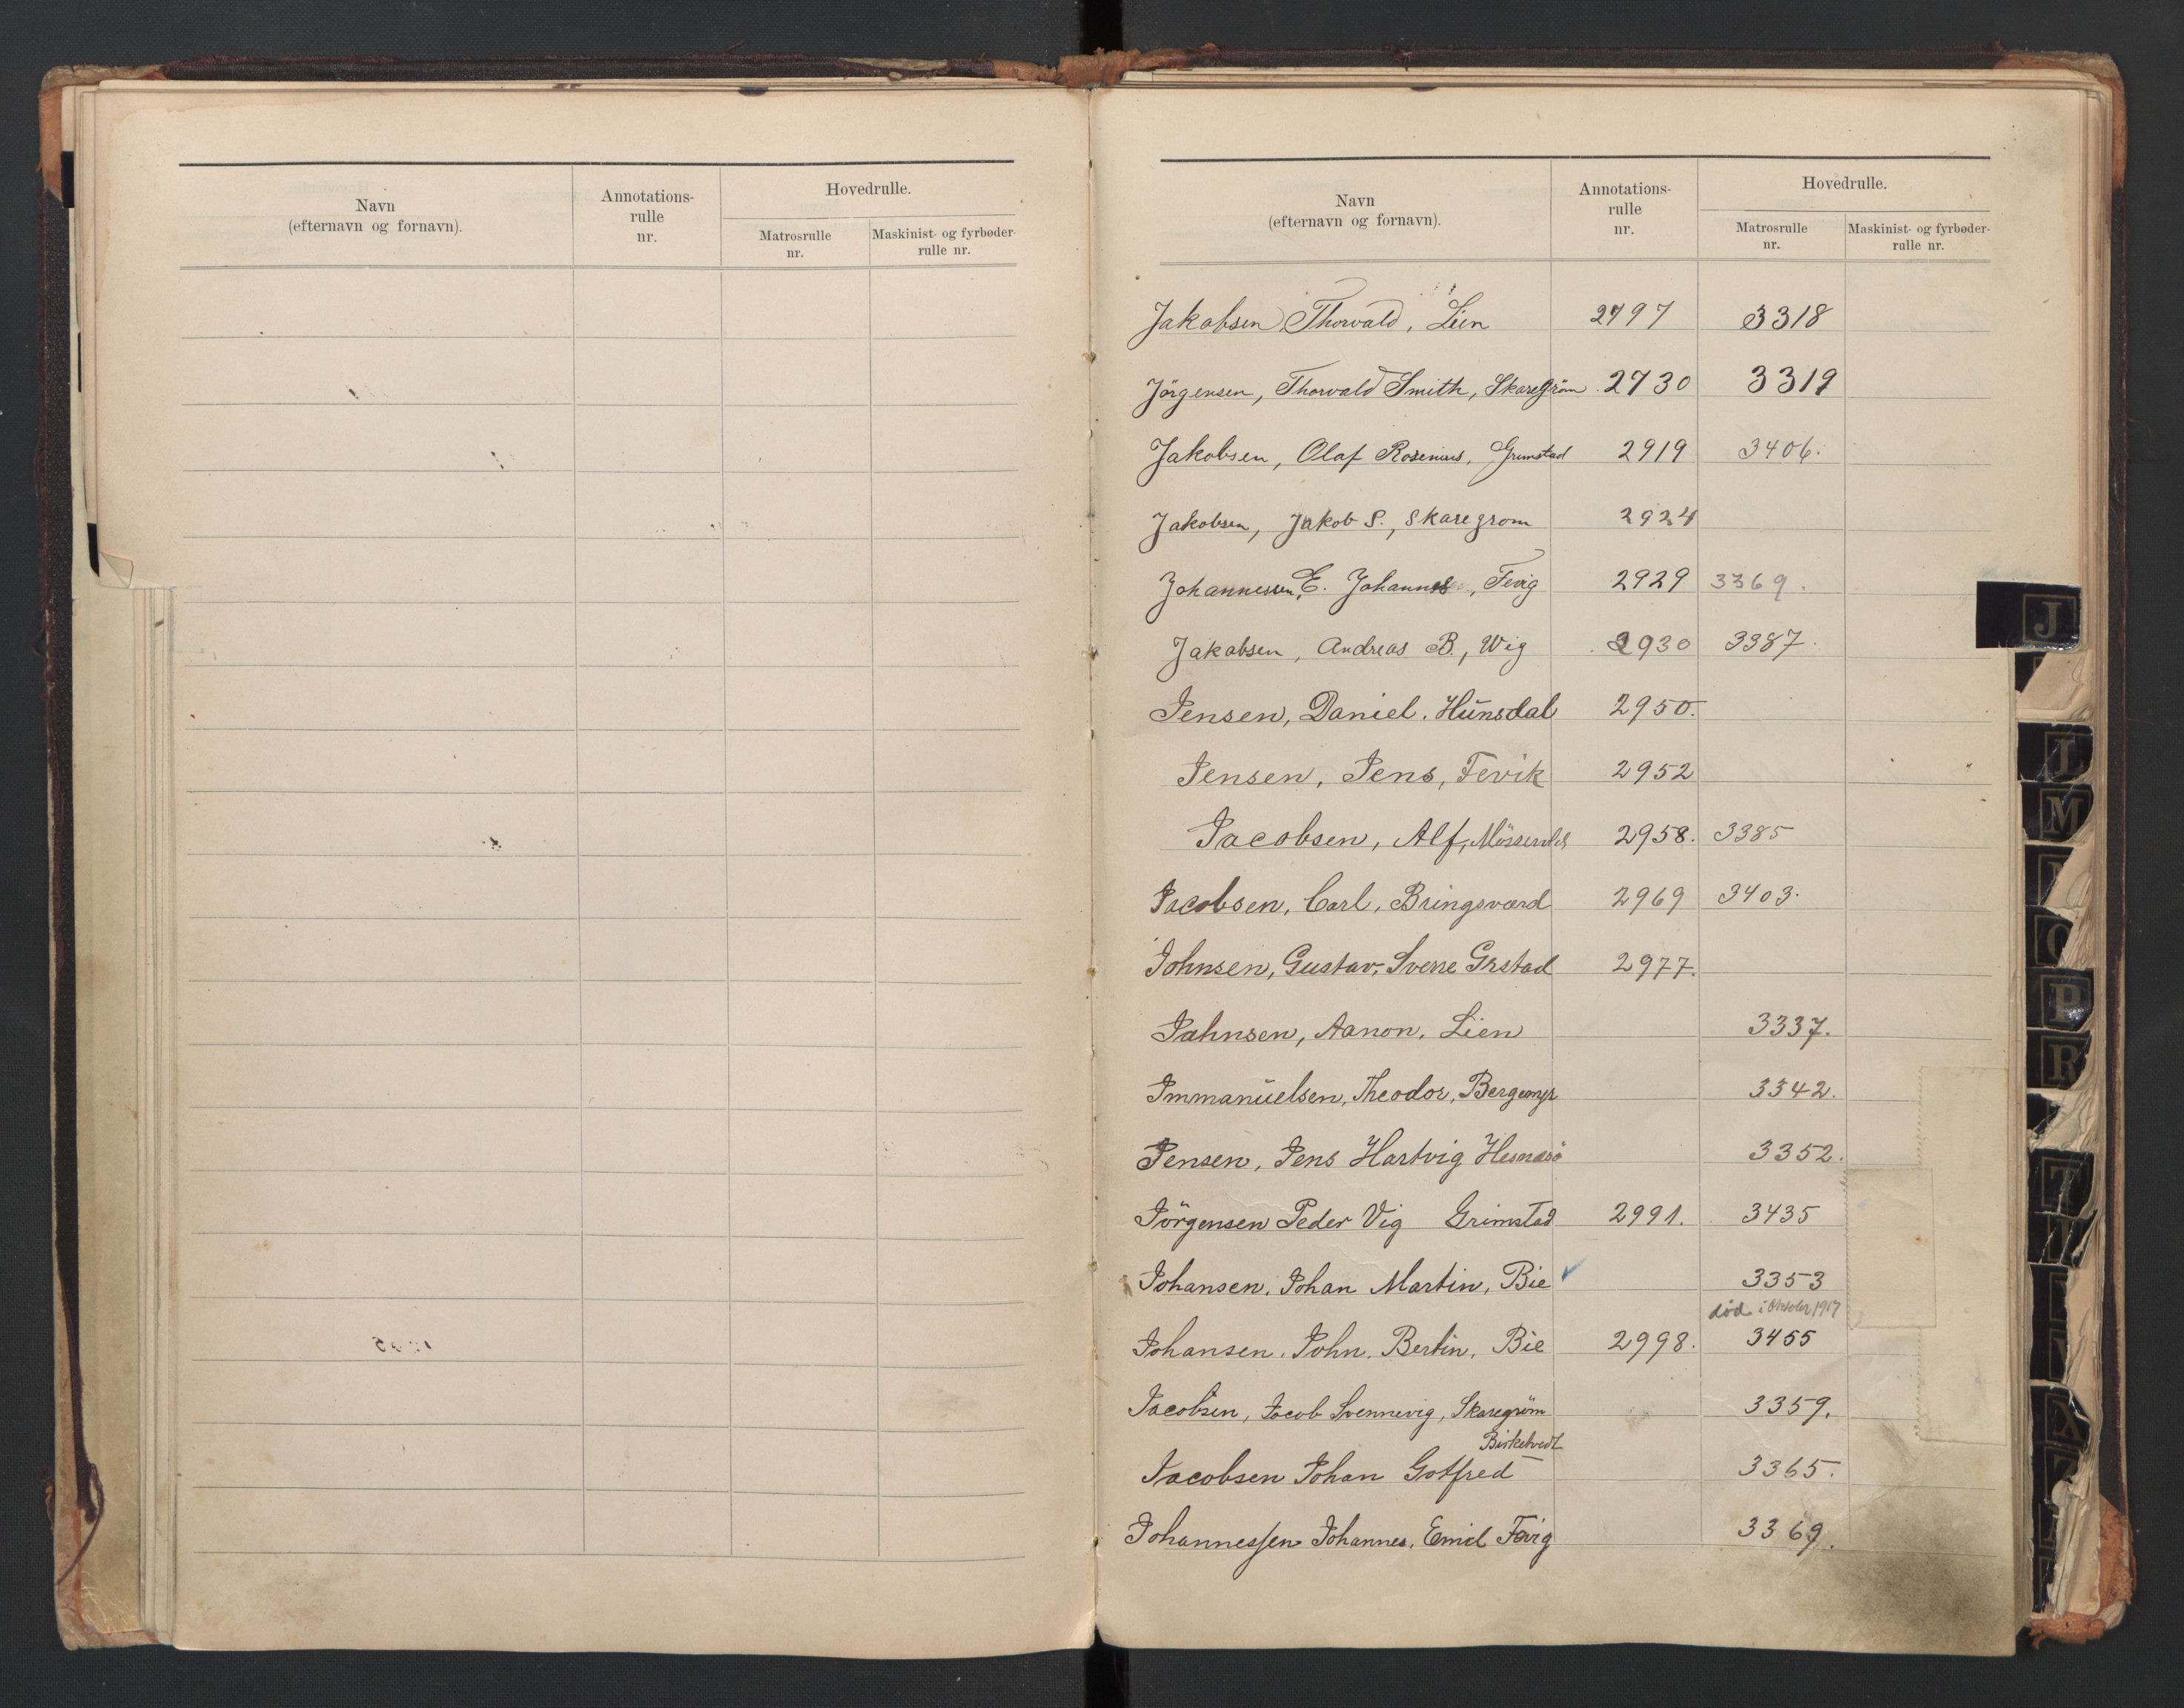 Navn
(efternavn og fornavn).
Annotations-
rulle
nr.
Hovedrulle.
Matrosrulle
nr.
Maskinist- og fyrbøder-
rulle nr.
Navn
(efternavn og fornavn).
Annotations-
rulle
nr.
Hovedrulle.
Matrosrulle
nr.
Maskinist- og fyrbøder-
rulle nr.
Jakobsen, Thorvald, Lien 2797 3318
Jörgensen, Thorvald Smith, Skaregröm 2730 3319
Jakobsen, Olaf Rosenius, Grimstad 2919 3406.
Jakobsen, Jakob S., Skaregrom 2924
Johannessen, E. Johannes, Fevig 2929 3369.
Jakobsen, Andreas B., Wig 2930 3387.
Jensen, Daniel. Hunsdal 2950.
Jensen, Jens, Fevik 2952
Jacobsen, Alf, 2958. 3385
Jacobsen, Carl, Bringsværd 2969 3403.
Johnsen, Gustav, Sverre Grstad 2977.
Johnsen, Aanon, Lien 3337.
Immanuelsen, Theodor, Bergemyr 3342.
Jensen, Jens Hartvig Hesnesö 3352.
Jörgensen Peder Vig Grimstad 2991. 3435
Johansen, Johan Martin, Bie ✓ 3353
död i Oktober 1917
Johansen, John. Bertin, Bie 2998. 3455
Jacobsen, Jacob Svennevig, Skaregröm 3359.
Birketvedt
Jacobsen Johan Gotfred 3365.
Johannessen Johannes, Emil Fevig 3369.
J
I
M
N
O
P
R
T